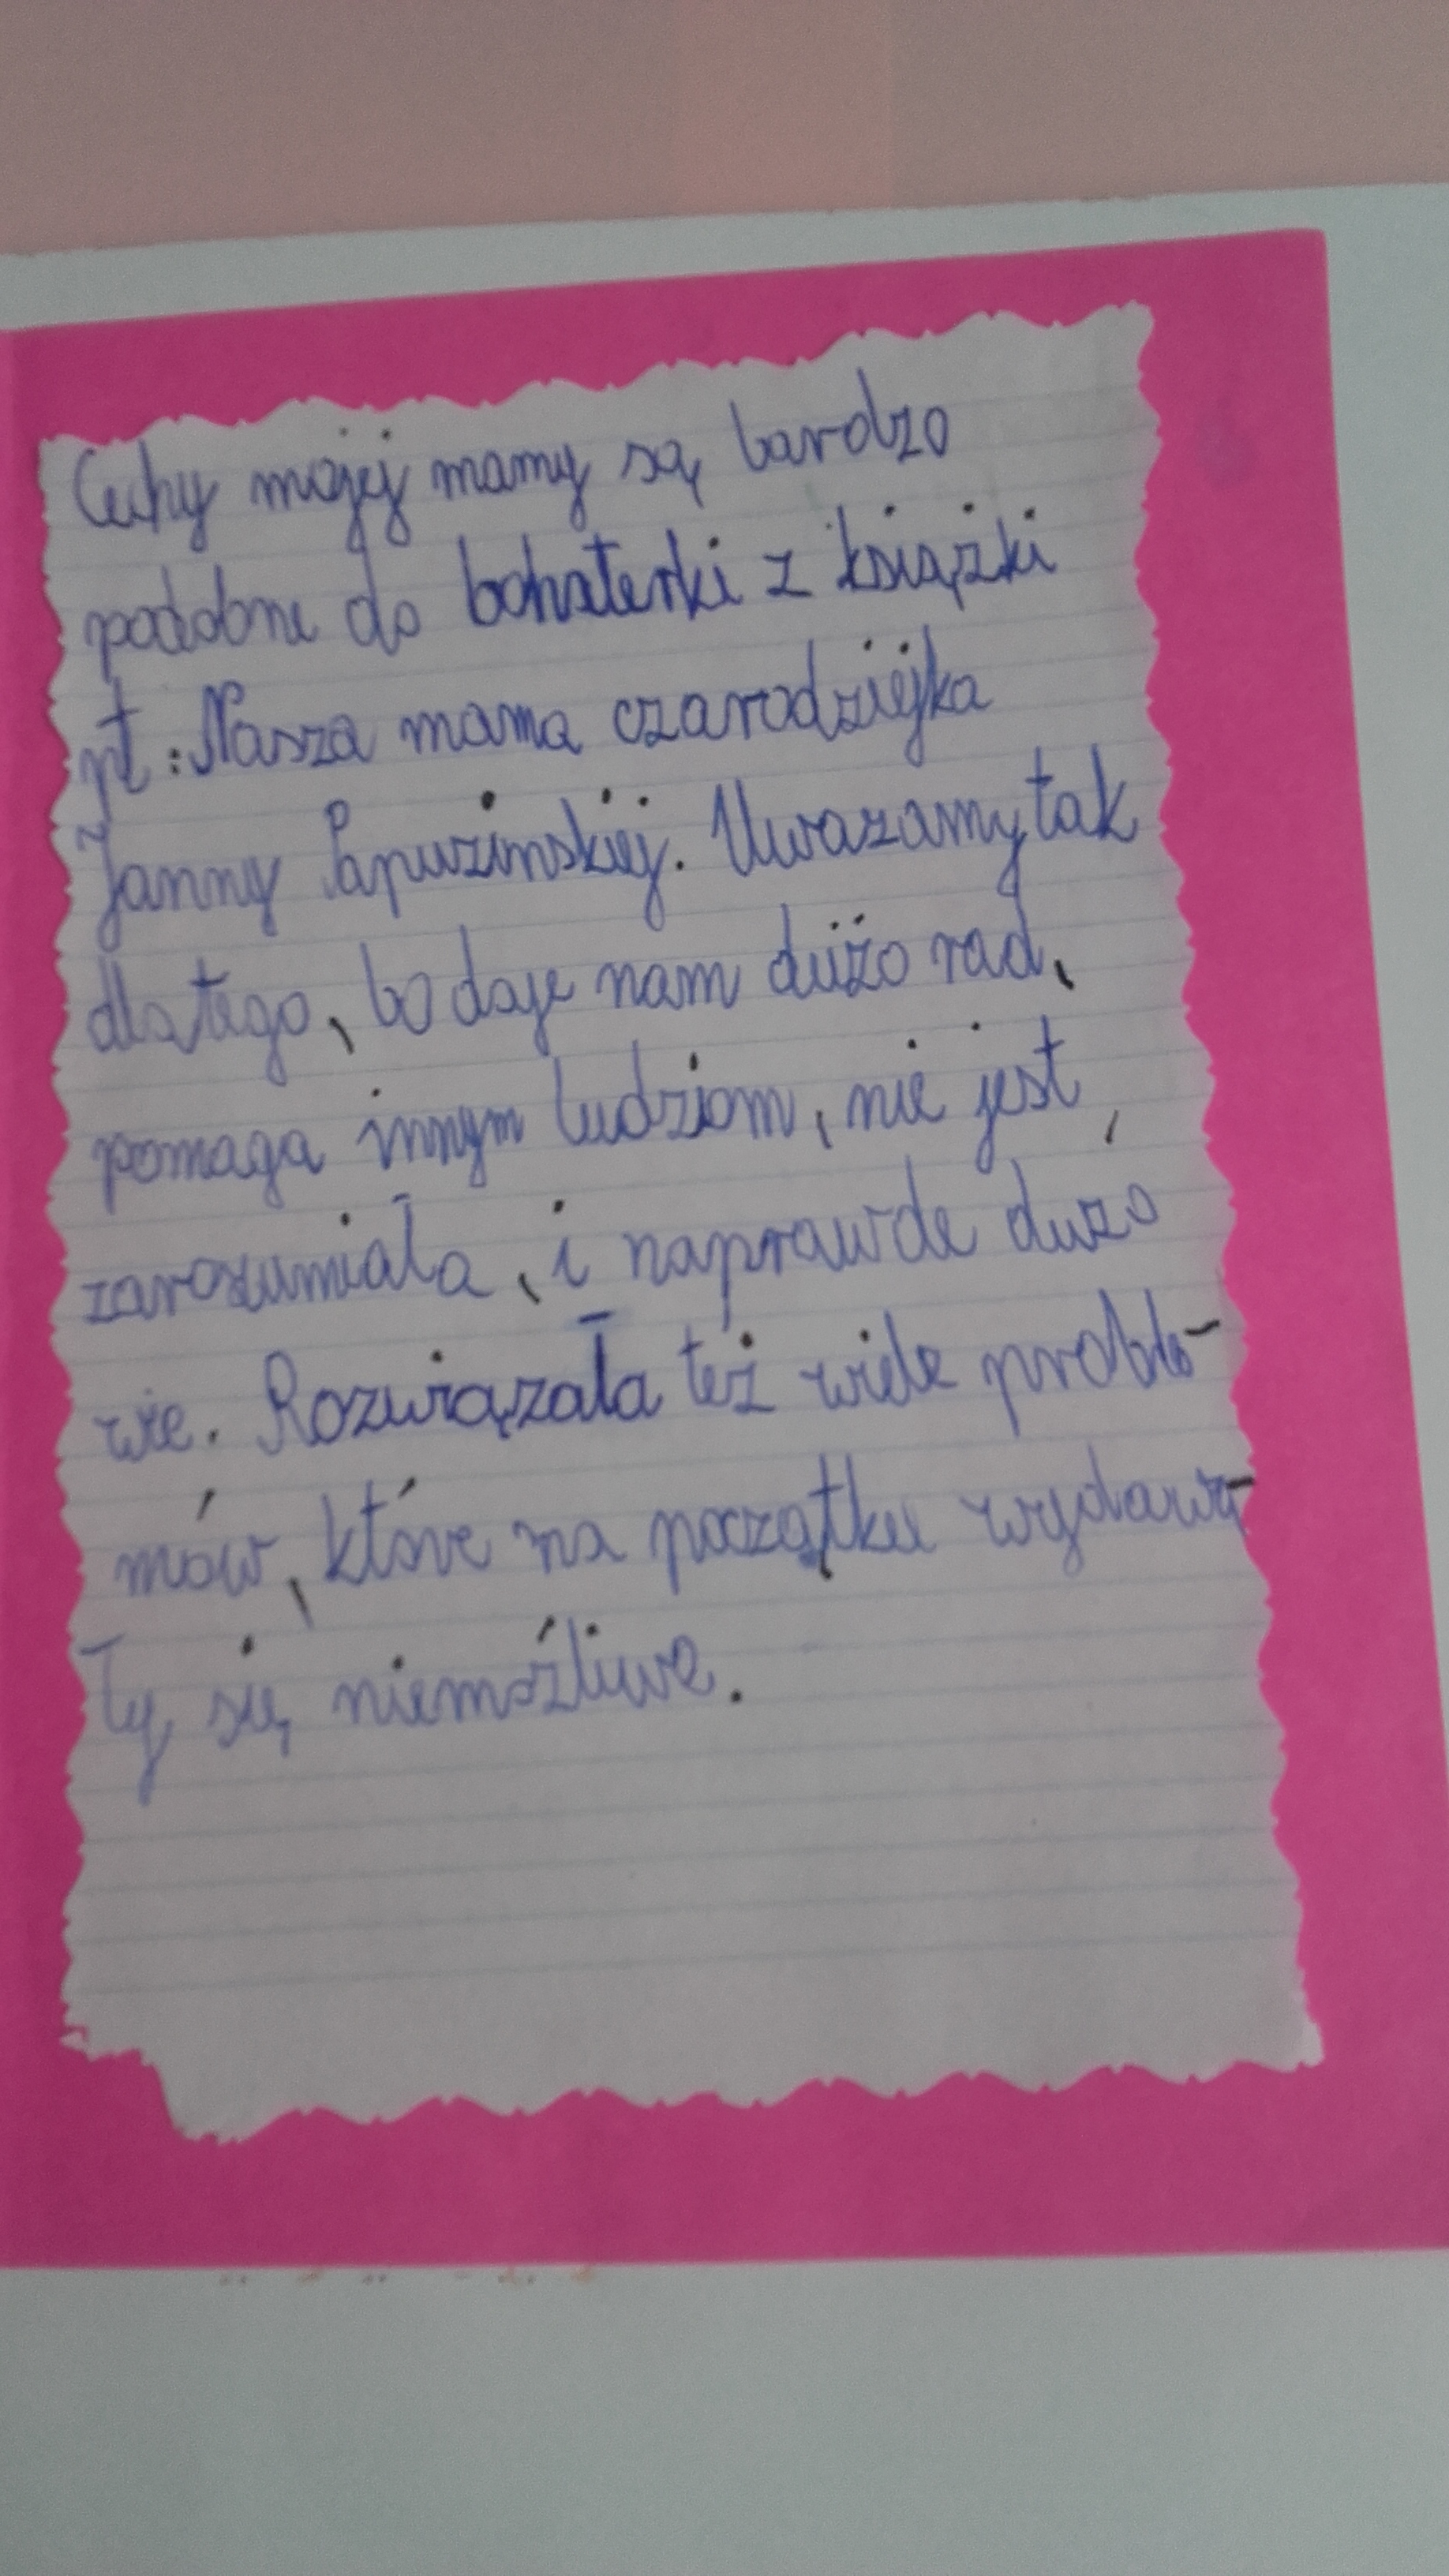 Cechy mojej mamy są bardzo
podobne do bohaterki z książki
pt: Nasza mama czarodziejka
Janny Papuzinskiej. Uwazamy tak
dlatego, bo daje nam dużo rad,
pomaga innym ludziom, nie jest
zarozumiała, i naprawde duzo
wie. Rozwiązała też wiele proble-
mów, które na początku wydawa-
ły się niemożliwe.